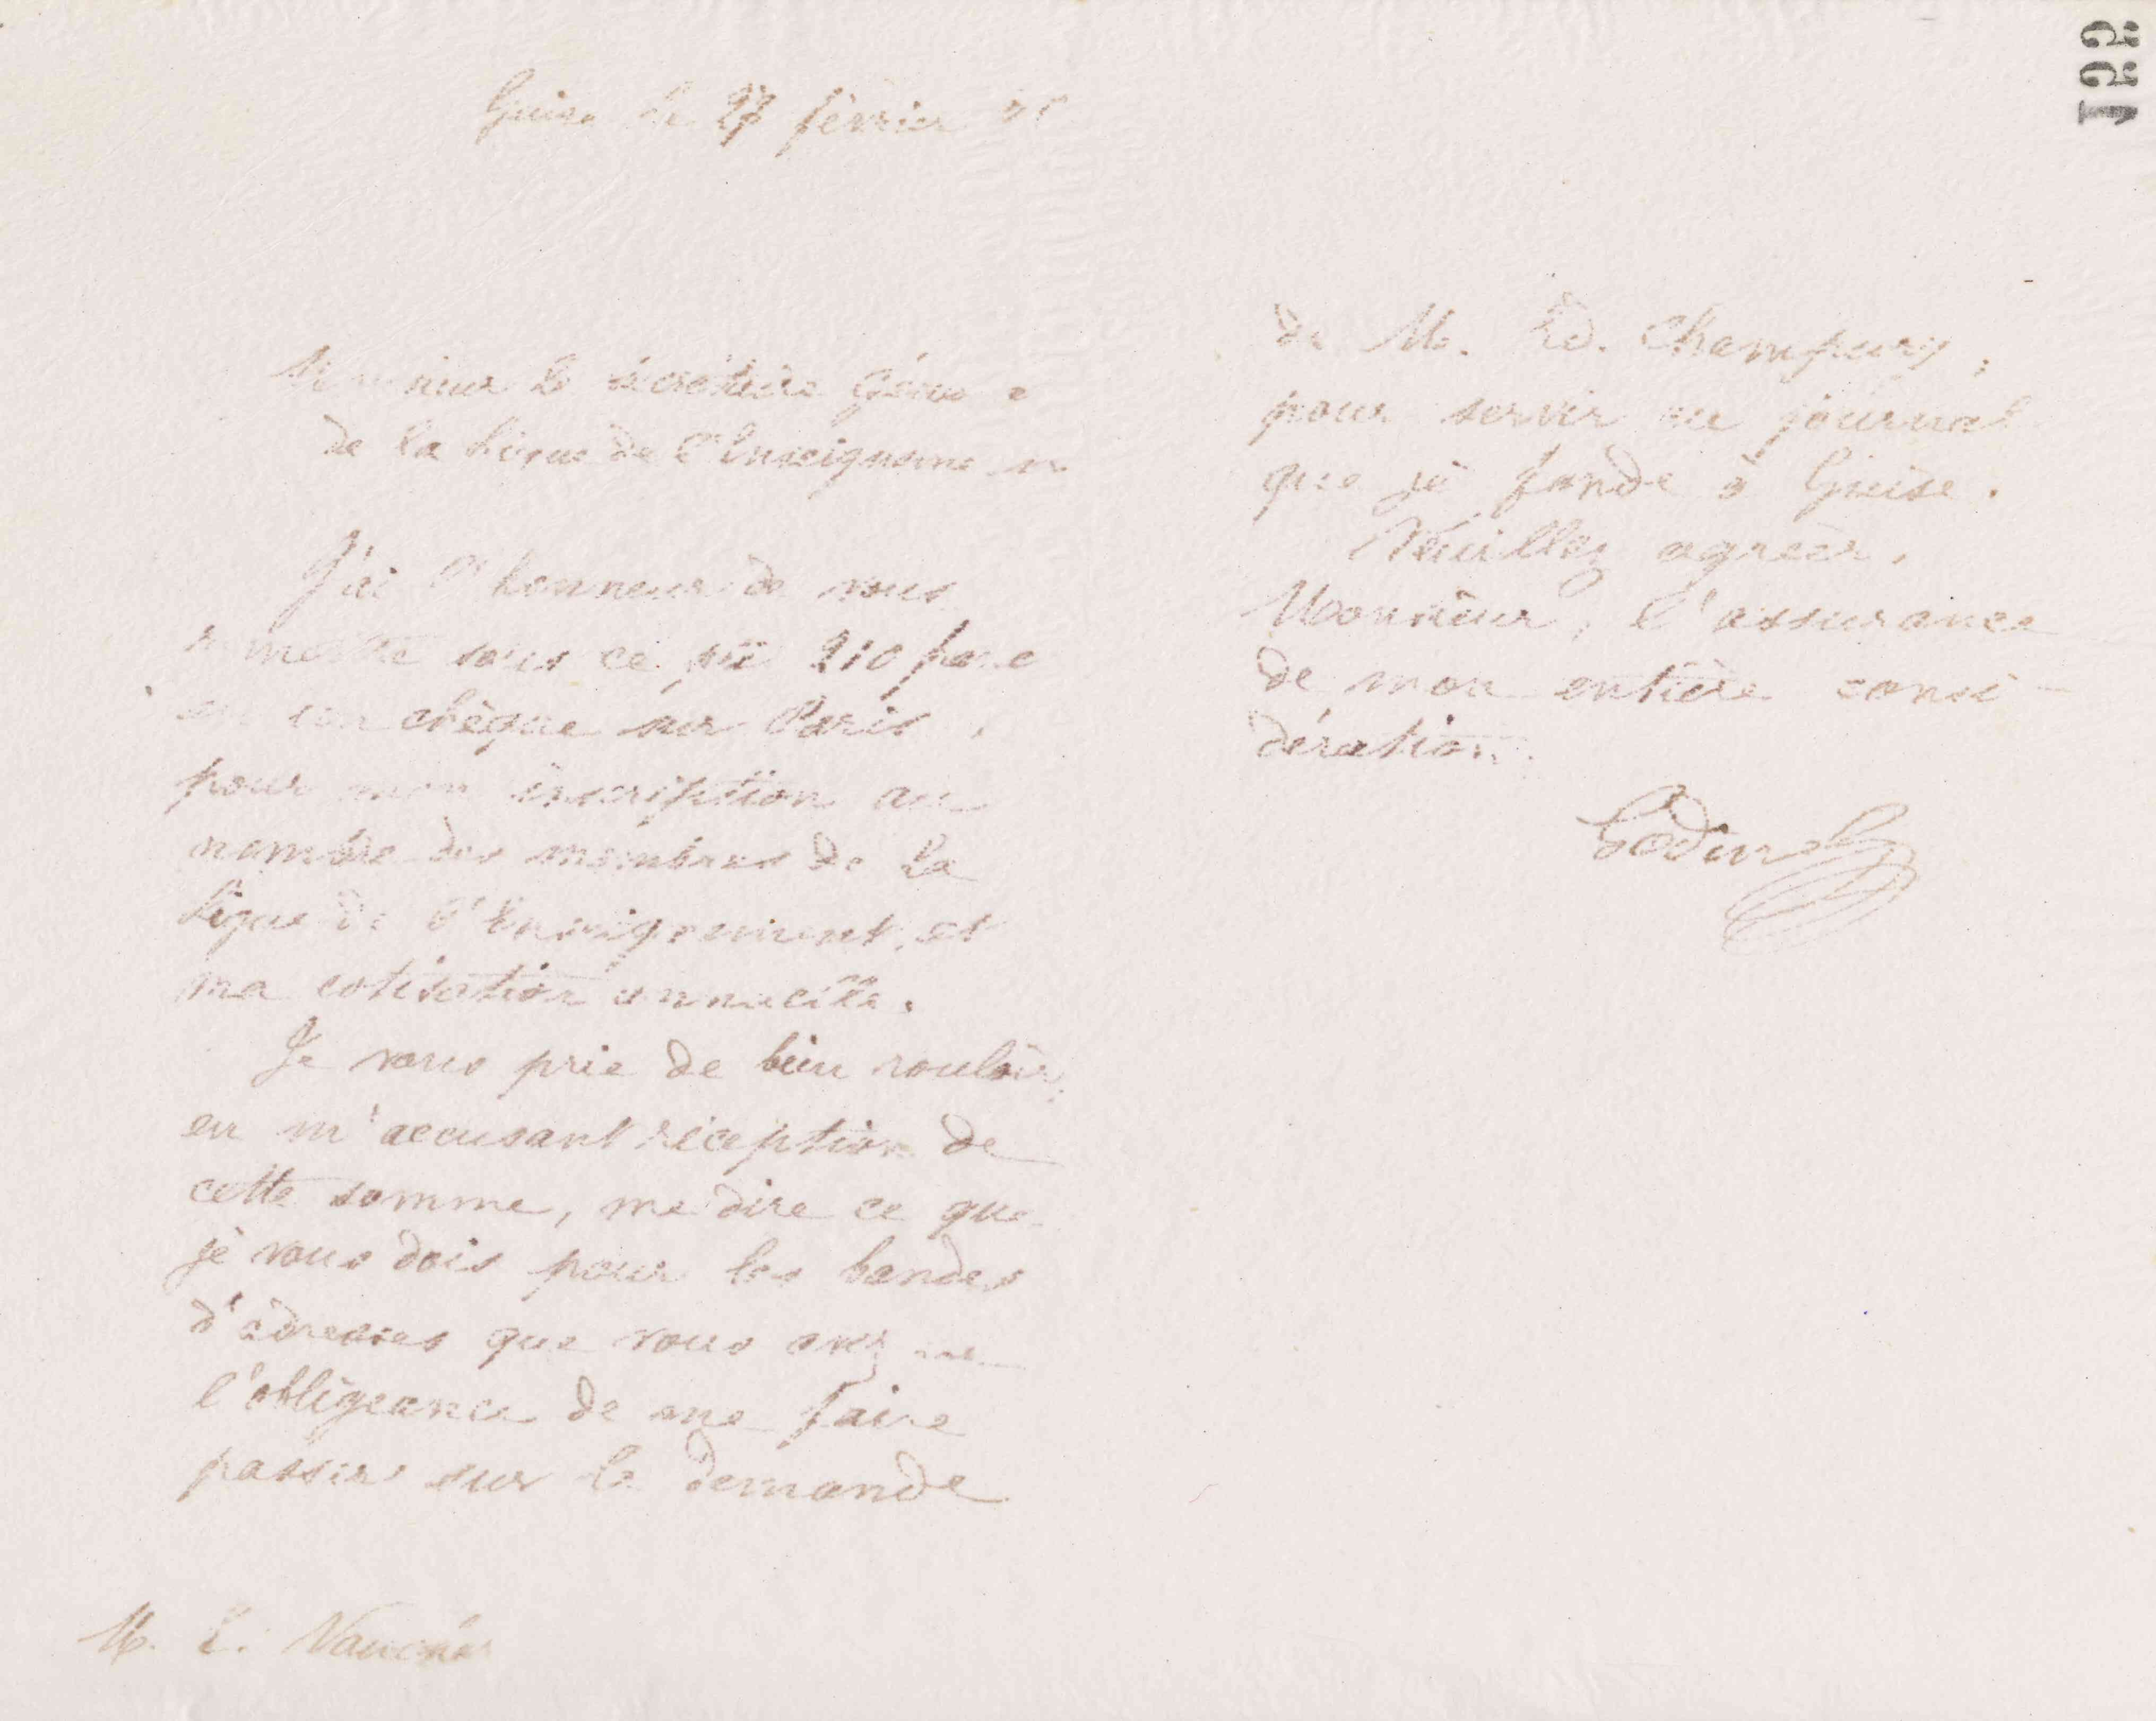 122
Guise le 27 février
Monsieur le secrétaire Géné
de la Ligue de l'Enseignemen
J'ai l'honneur de vous
remettre sous ce pli 210 franc
en un chèque sur Paris,
pour mon inscription au
nombre des membres de la
Ligue de l'Enseignement, et
ma cotisation annuelle.
Je vous prie de bien vouloir,
en m'accusant réception de
cette somme, me dire ce que
je vous dois pour les bandes
d'adresses que vous avez
l'obligeance de me faire
passer sur la demande
M. E. Vauchez
de M. Ed. Champury,
pour servir au journal
que je fonde à Guise.
Veuillez agréer,
Monsieur, l'assurance
de mon entière consi-
dération.
Godin